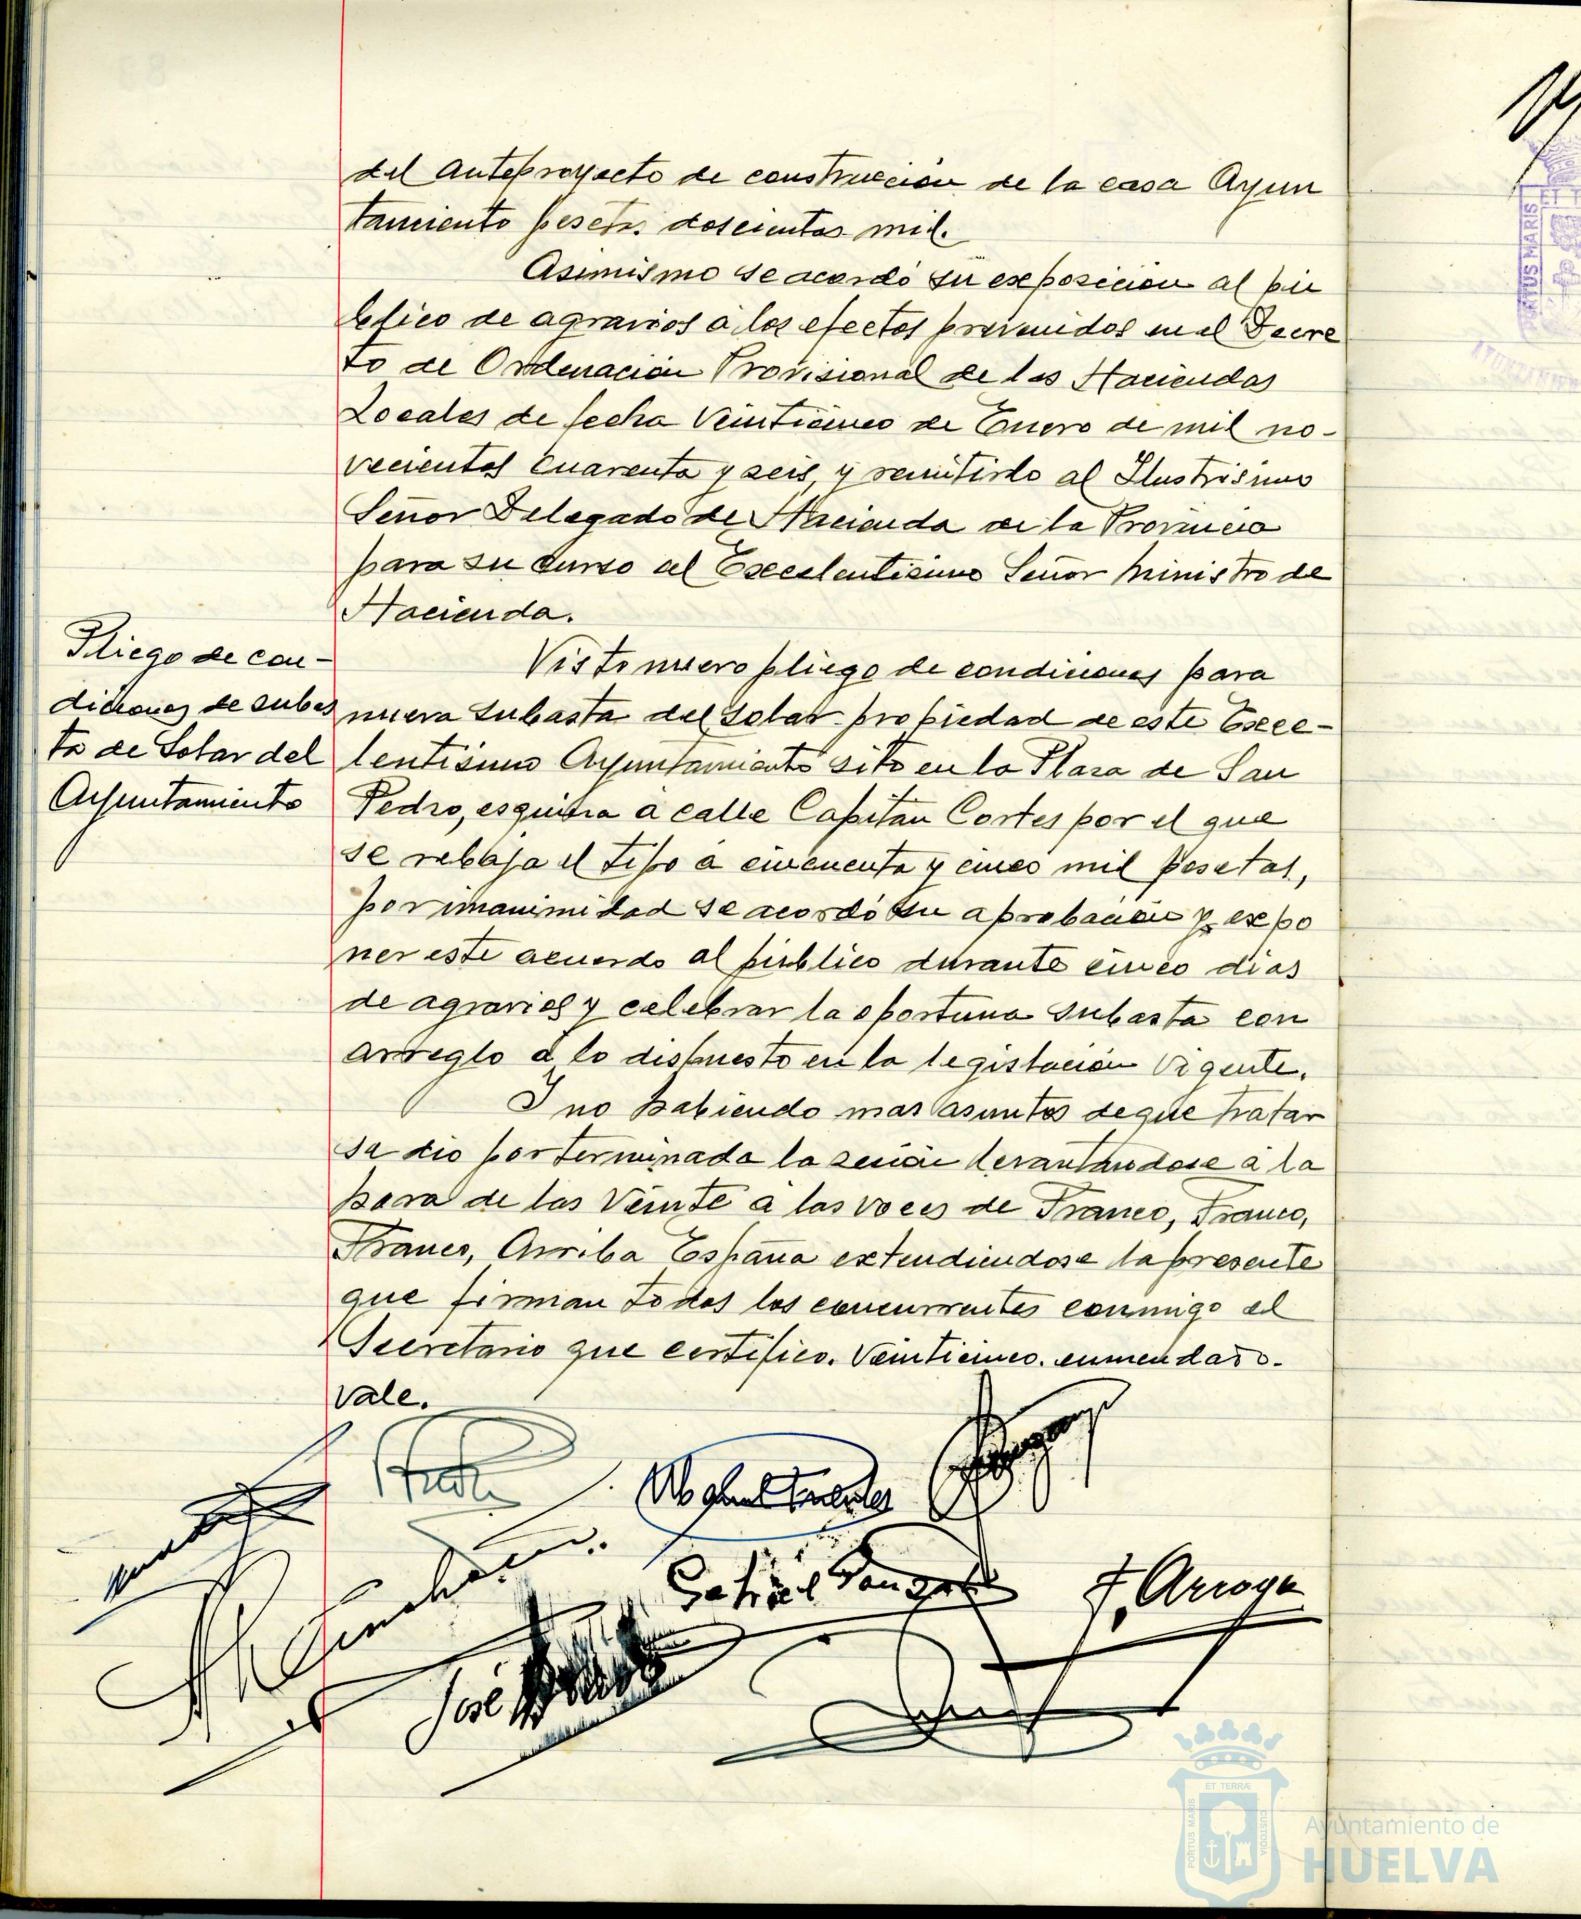 del anteproyecto de construcción de la casa Ayun
tamiento pesetas doscientas mil.
Asimismo se acordó su exposición al pú
blico de agravios a los efectos prevenidos en el Decre
to de Ordenación Provisional de las Haciendas
Locales de fecha Veinticinco de Enero de mil no-
vecientos cuarenta y seis, y remitirlo al Ilustrisimo
Señor Delegado de Hacienda de la Provincia
para su curso al Excelentisimo Señor Ministro de
Hacienda.
Pliego de con-
diciones de subas
ta de Solar del
Ayuntamiento
Visto nuevo pliego de condiciones para
nueva subasta del solar propiedad de este Exce-
lentisimo Ayuntamiento sito en la Plaza de San
Pedro, esquina a calle Capitan Cortes por el que
se rebaja el tipo a cincuenta y cinco mil pesetas,
por unanimidad se acordó su aprobación y expo
ner este acuerdo al público durante cinco dias
de agravios y celebrar la oportuna subasta con
arreglo a lo dispuesto en la legislación Vigente.
Y no habiendo mas asuntos de que tratar
se dio por terminada la sesión levantandose a la
hora de las Veinte a las voces de Franco, Franco,
Franco, Arriba España extendiendose la presente
que firman todos los concurrentes conmigo el
Secretario que certifico. Veinticinco. enmendado.
vale.
Gabriel
F. Arroyo
José
PORTUS MARIS
ET TERRÆ
CUSTODIA
Ayuntamiento de
HUELVA